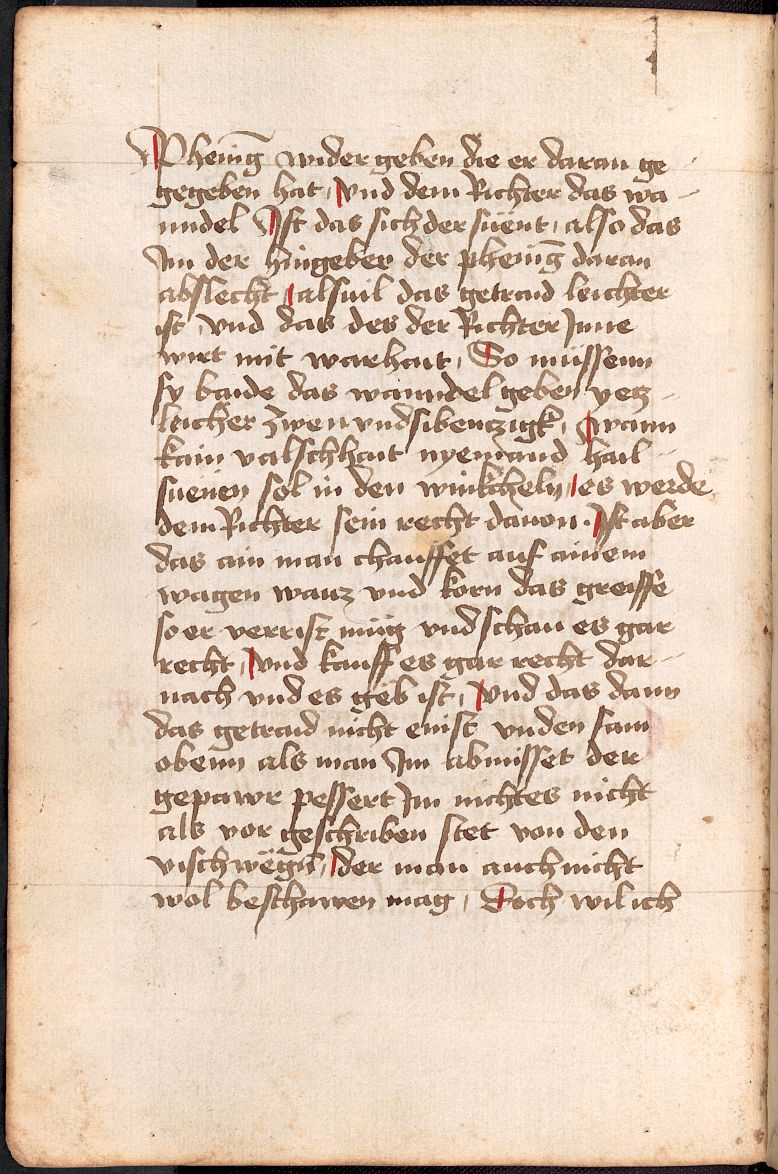 Phening wider geben die er daran ge
gegeben hat, Vnd dem Richter das wa-
nndel Ist das sich der süent, also das
Im der hingeber der phening daran
abslecht, alsuil das getraid leichter
ist, vnd das des der Richter Inne
wirt mit warhait, So müssenn
sy baide das wanndel geben yetz-
leicher zwen vnd sibenczigk, wann
kain valschhait nyemand hail-
suenen sol in den winkcheln, es werde
dem Richter sein recht dauon. Ist aber
das ain man chauffet auf ainem
wagen waitz vnd korn das greiffe
so er verrist müg vnd schau es gar
recht, Vnd kauff es gar recht dar-
nach vnd es geb ist, Vnd das dann
das getraid nicht enist vnden sam
obenn als man Im abmisset der
gepawr pessert Im nichtes nicht
als vor geschriben stet von den
visch wëgn, der man auch nicht
wol beschawen mag, Doch wil ich